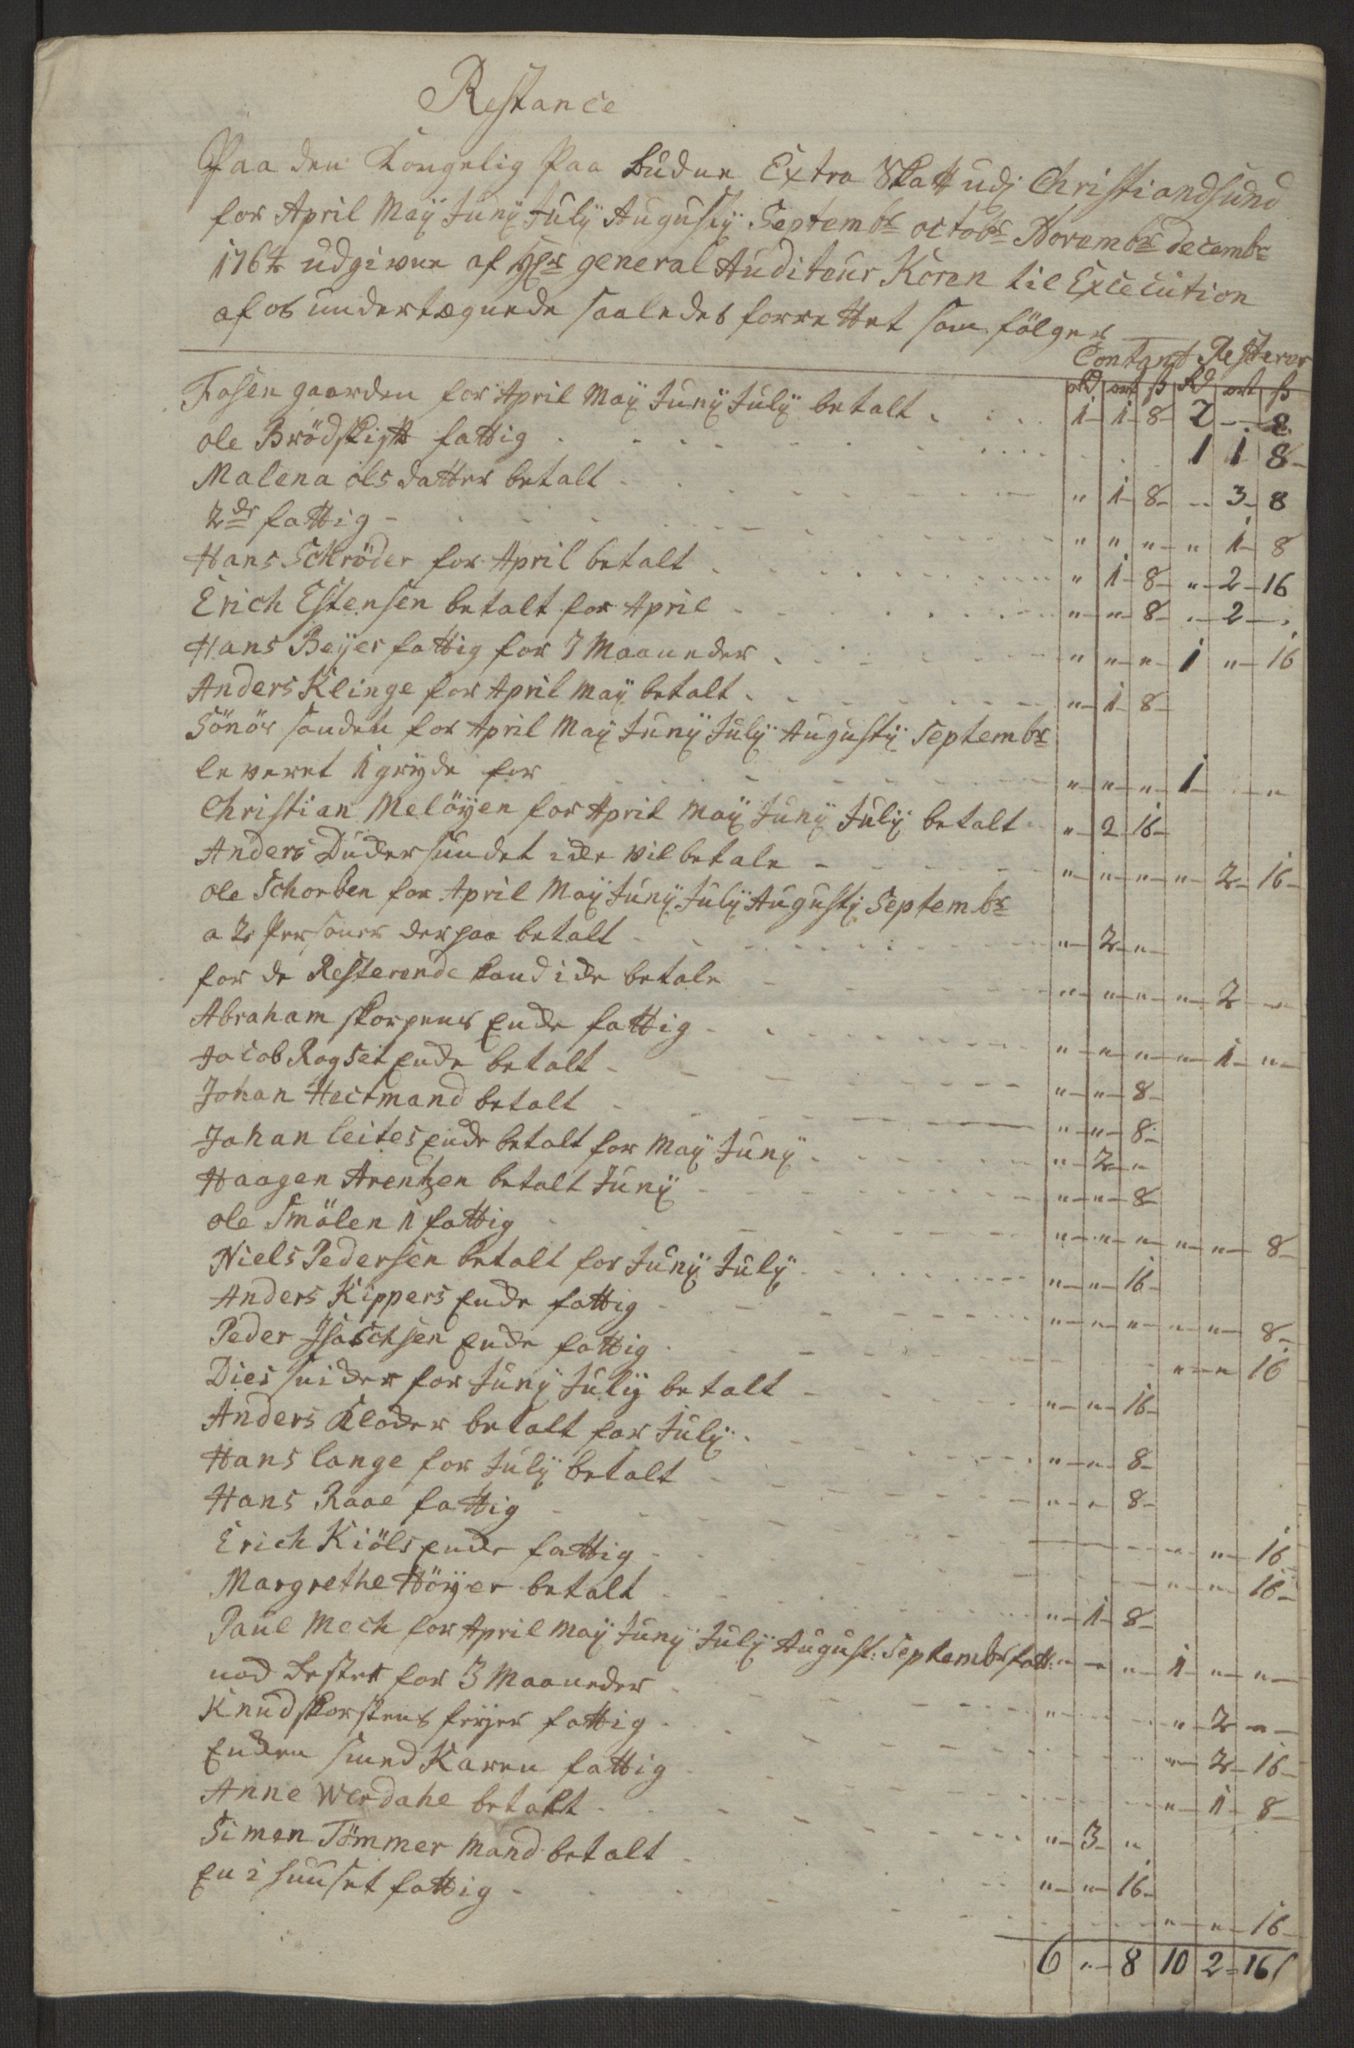 Restance
Paa den Kongelig Paa budne Extra Skatt udj Christiandsund
for April Maÿ Junÿ Julÿ Augustÿ Septembr octobr Novembr decembr
1764 udgivne af Hr general Auditeur Koren til Excecution
af os undertægnede saaledes forrettet som fölger
Contant Resterer
rd ort ß Rd ort ß
Fosen gaarden for April Maÿ Junÿ Julÿ betalt 1 1 8 2 - 8
ole Brödskift fattig 1 1 8
Malena ols datter betalt " 1 8 - 3 8
2de fattig " " " " 1 8
Hans Schröder for April betalt " 1 8 " 2 16
Erich Estensen betalt for April " " 8 - 2 -
Hans Beyer fattig for 7 Maaneder " " " 1 " 16
Anders Klinge for April maÿ betalt " 1 8
Sönör sanden for April Maÿ Junÿ Julÿ Augustÿ Septembr
leveret 1 grÿde for " " " 1 - "
Christian Melöyen for April Maÿ Junÿ Julÿ betalt " 2 16
Anders Dudersundet icke vil betale " " " " 2 16
ole Schorben for April Maÿ Junÿ Julÿ Augustÿ Septembr
a 2 Personer derpaa betalt " 2 "
for de Resterende kand icke betale " " " " 2 "
Abraham skorpens Encke fattig " " " " 1 "
Jacob Rogset Encke betalt " " 8
Johan Hectmand betalt " " 8
Johan leites Encke betalt for Maÿ Junÿ " 2 "
Haagen Arentzen betalt Junÿ " " 8
ole Smölen 1 fattig " " " " " 8
Niels Pedersen betalt for Junÿ Julÿ " " 16
Anders Kippers Encke fattig " " " " " 8
Peder Isachsen Encke fattig " " 16
Dies snider for Junÿ Julÿ betalt " " 16
Anders Kloder betalt for Julÿ " " 8
Hans lange for Julÿ betalt " " 8
Hans Raae fattig " " 16
Erich Kiöls Encke fattig " " 16
Margrethe Höyer betalt " 1 8
Paul Mech for April Maÿ Junÿ Julÿ August: Septembr fatt: " " " 1 " "
nock Rester for 3 Maaneder " " 2 "
Knud skorstens feyer fattig " 2 16
Encken smed Karen fattig " 1 8
Anne Werdahe betalt " 3 "
Simen Tömmer mand betalt " " 16
En i huuset fattig " " 16
6 " 8 10 2 16